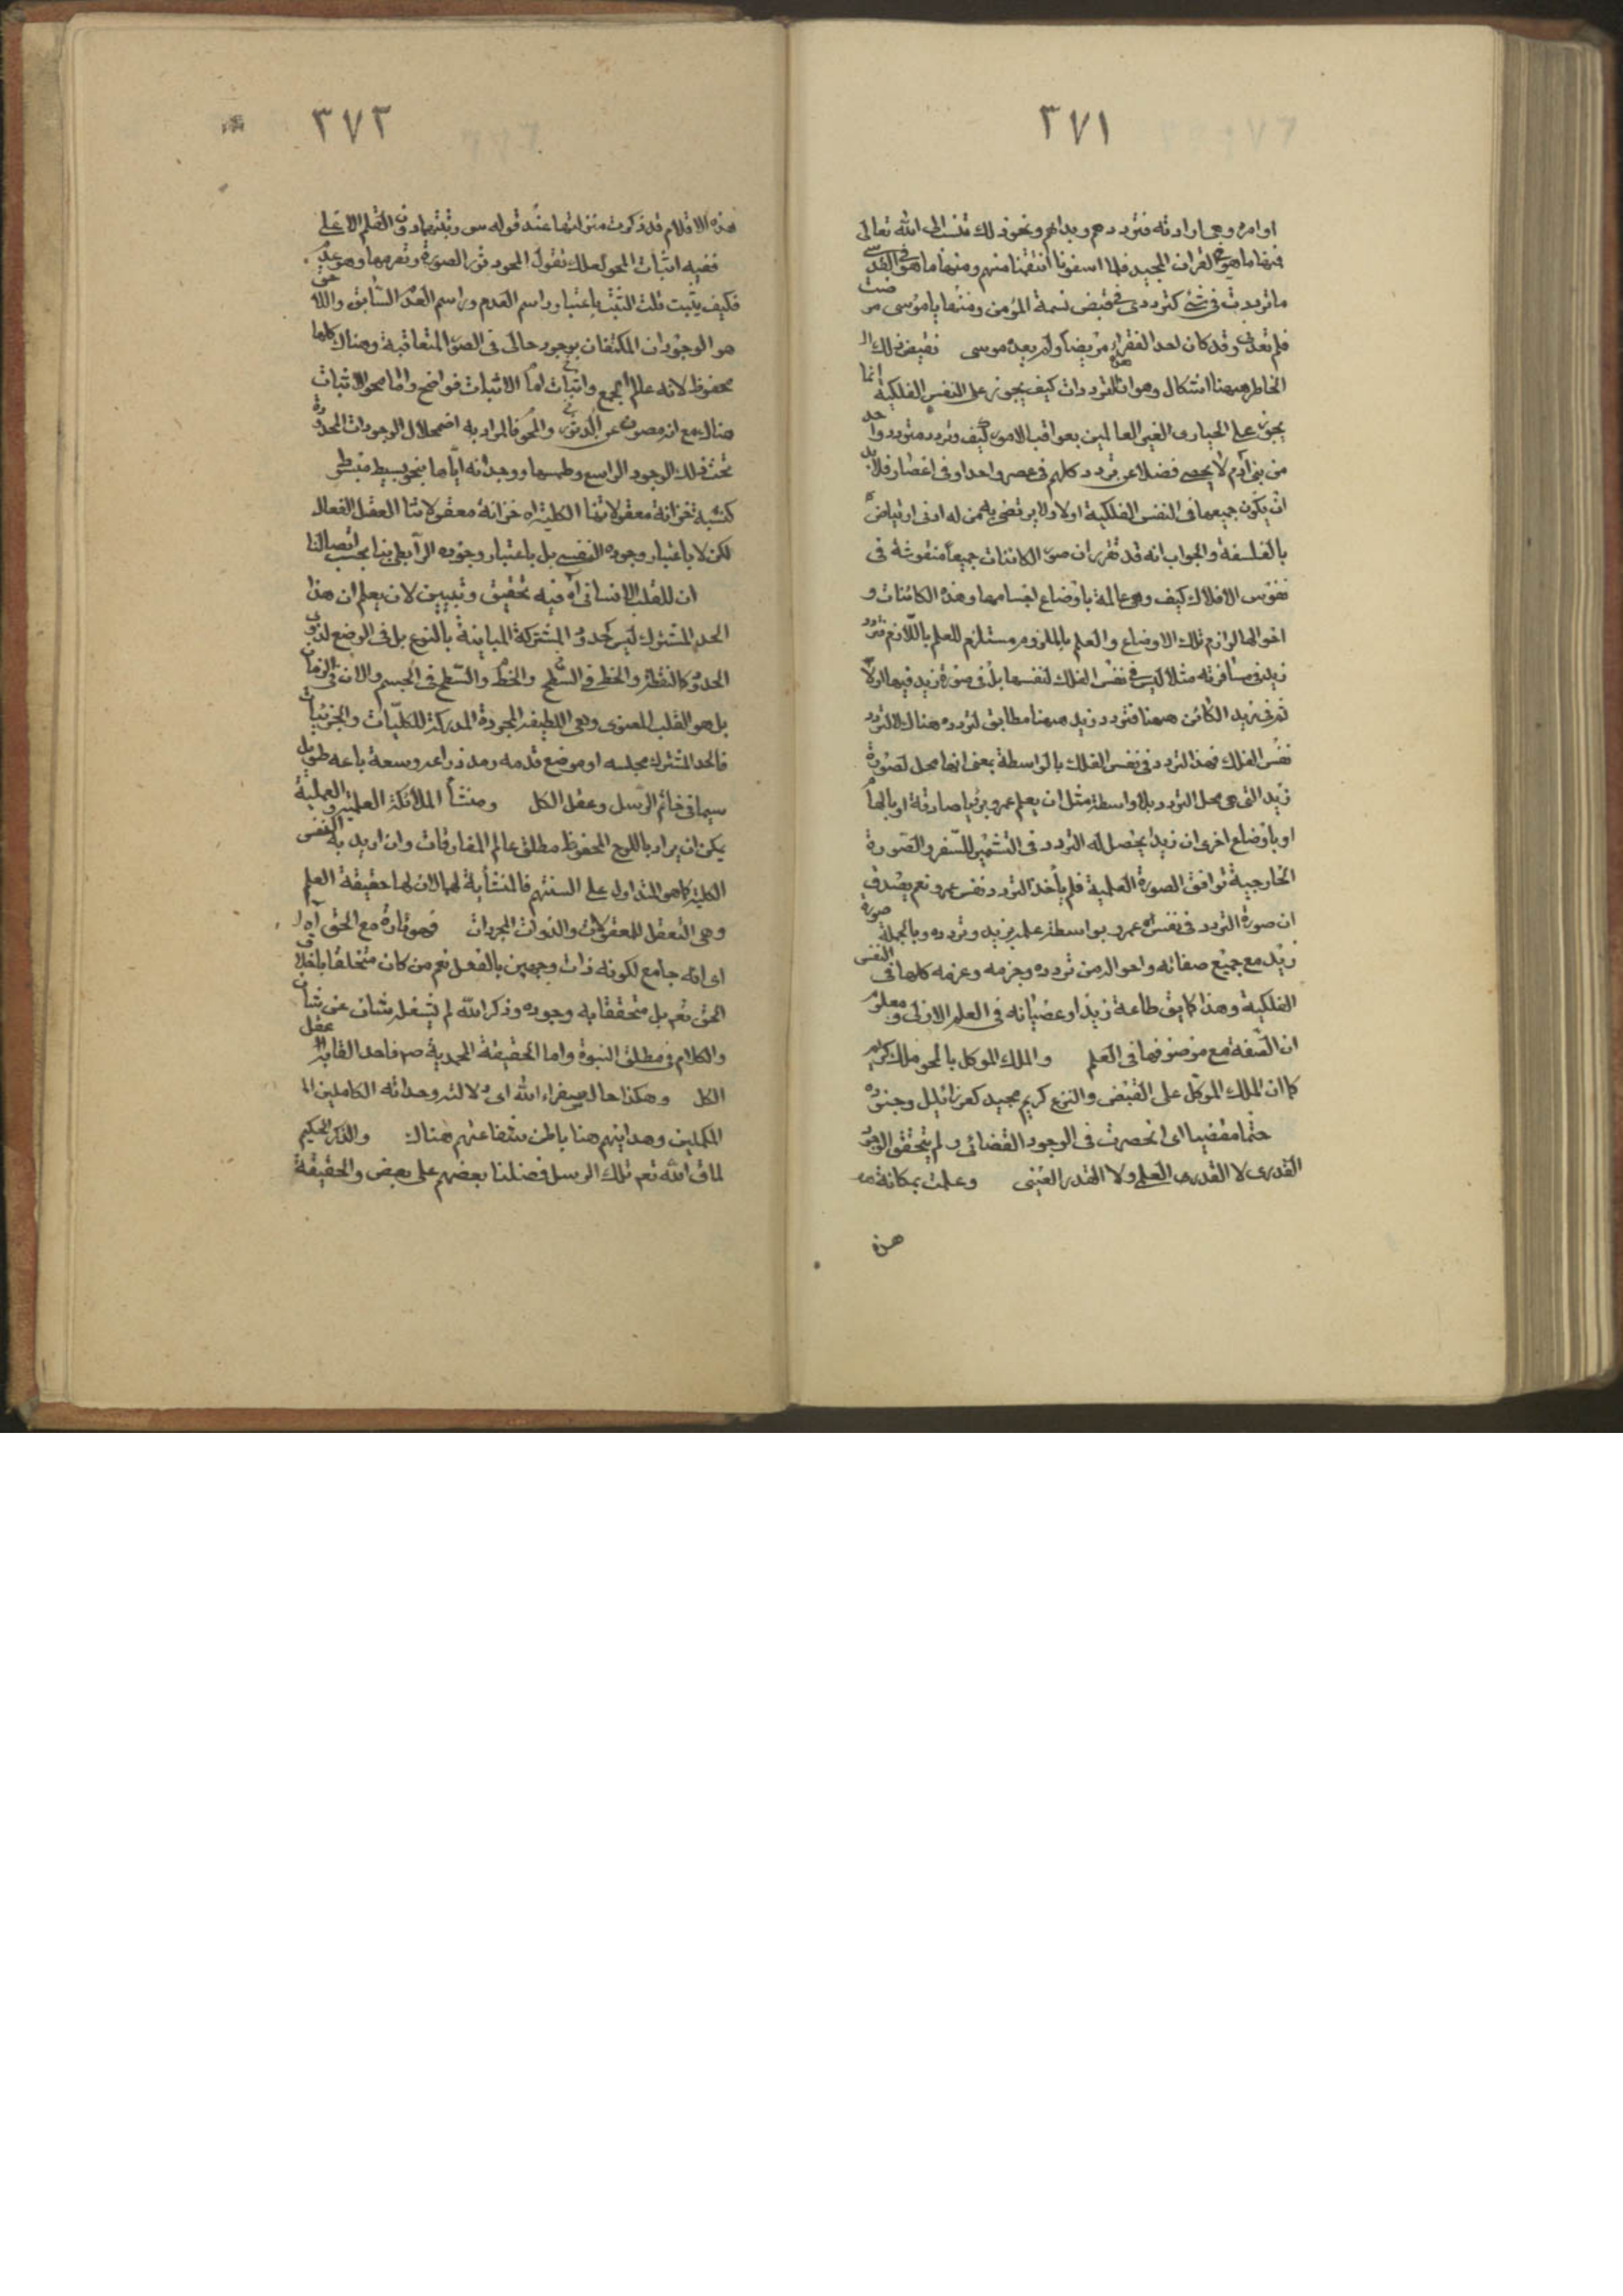 ٣٧١
اوامره وهی ارادته فتردد هم وبداهم ونحو ذلك تنسب الى الله تعالى
فمنها ما هو فى القران المجید فلما اسفونا انتقمنا منهم ومنها ما هو فى القدسى
ما ترددت فى شئ كترددى فى قبض نسمة المؤمن ومنها يا موسى مرضت
فلم تعدنى وقد كان احد الفقراء مريضا ولم يعده موسى نقيض ذلك ال
الخاطر ههنا اشكال وهو ان هذه الترددات كيف يجوز على النفس الفلكية انما
يجوز على الحيارى الغير العالمين بعواقب الامور كيف وتردد مترددوا حد
من بنى آدم لا يحصى فضلا عن تردد كلهم فى عصر واحد او فى اعصار فلا بد
ان يكون جميعها فى النفس الفلكية اولا ولا يرتضى به من له ادنى ارتياض
بالفلسفة والجواب انه قد تقرر ان صور الكائنات جميعا منقوشة فى
نفوس الافلاك كيف وهى عالمة باوضاع اجسامها وهذه الكائنات و
احوالها لوازم تلك الاوضاع والعلم بالملزوم مستلزم للعلم باللازم فتردد
زيد فى مسافرته مثلا ليس فى نفس الفلك لنفسها بل فى صورة زيد فيها اولا
ثم فى زيد الكائن ههنا فتردد زيد ههنا مطابق لتردده هناك لا لتردد
نفس الفلك فهذا التردد فى نفس الفلك بالواسطة بمعنى انها محل لصورة
زيد التى هى محل التردد بلا واسطة مثل ان يعلم عمرو برؤيا صادقة او بالهام
او باوضاع اخرى ان زيدا يحصل له التردد فى التشمير للسفر والصورة
الخارجية توافق الصورة العلمية فلم يأخذ التردد نفس عمرو نعم يصدق
ان صورة التردد فى نفس عمرو بواسطة علمه بزيد وتردده وبالجملة صورة
زيد مع جميع صفاته واحواله من تردده وجزمه وعزمه كلها فى النفس
الفلكية وهذا كما يق طاعة زيد او عصيانه فى العلم الازلى ومعلوم
ان الصفة مع موصوفها فى العلم والملك الموكل بالمحو ملك كريم
كما ان الملك الموكل على القبض والنزع كريم مجيد كعزرائيل وجنوده
حتما مقضيا اى انحصرت فى الوجود القضائى ولم يتحقق الوجود
القدرى لا القدرى العلمى ولا القدر العينى وعلمت بمكانة
هذه
٣٧٢
هذه الاقلام قد ذكرت منزلتها عند قوله س ورتبتهما دون القلم الاعلى
ففيه اثبات المحو لعلك تقول المحو دثور الصورة وتصرمها وهو عدم
فكيف يثبت قلت التثبت باعتبار راسم العدم وراسم العدم السابق واللاحق
هو الوجودان المكتنفان بوجود حالى فى الصور المتعاقبة وهناك كلها
محفوظ لانه عالم الجمع واثبات اما الاثبات فواضح واما محو الاثبات
هناك مع انه مصون عن الدثور والمحو فالمراد به اضمحلال الوجودات المحدودة
تحت ذلك الوجود الواسع وطمسها ووجدانه اياها بنحو بسيط منبسط
كنسبة خزانة معقولاتنا الكلية اه خزانة معقولاتنا العقل الفعال
لكن لا باعتبار وجوده النفسى بل باعتبار وجوده الرابطى بنا بحسب اتصالنا
ان للقلب الانسانى آه فيه تحقيق وتبيين لان يعلم ان هذا
الحد المشترك ليس كحدود المشتركة المباينة بالنوع بل فى الوضع لذوى
الحدود كالنقطة والخط فى السطح والخط والسطح فى الجسم والان فى الزمان
بل هو القلب المعنوى وهى اللطيفة المجردة المدركة للكليات والجزئيات
فالحد المشترك مجلسه او موضع قدمه ومد ذراعه وسعة باعه طويل
سيما فى خاتم الرسل وعقل الكل ومنشأ الملائكة العلمية والعملية
يمكن ان يراد باللوح المحفوظ مطلق عالم المفارقات وان اريد به النفس
الكلية كما هو المتداول على السنتهم فالمنشأية لهما لان لها حقيقة العلم
وهى التعقل للمعقولات والذوات المجردات فهو تارة مع الحق آه
اى انه جامع لكونه ذات وجهين بالفعل نعم من كان متخلقا باخلاق
الحق تعم بل متحققا به وجوده وذكر الله لم يشغله شان عن شان
والكلام فى مطلق النبوة واما الحقيقة المحمدية ص فاحد القابه عقل
الكل وهكذا حال سفراء الله اى دلالته وحداته الكاملين ال
المكملين وهدايتهم هنا باطن شفاعتهم هناك والذكر الحكيم
لما ق الله تعم تلك الرسل فضلنا بعضهم على بعض والحقيقة